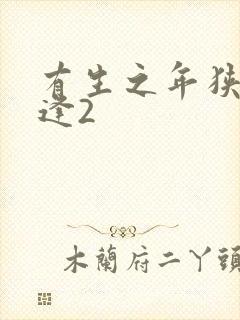 有生之年狭
逢2
木蘭府二丫頭